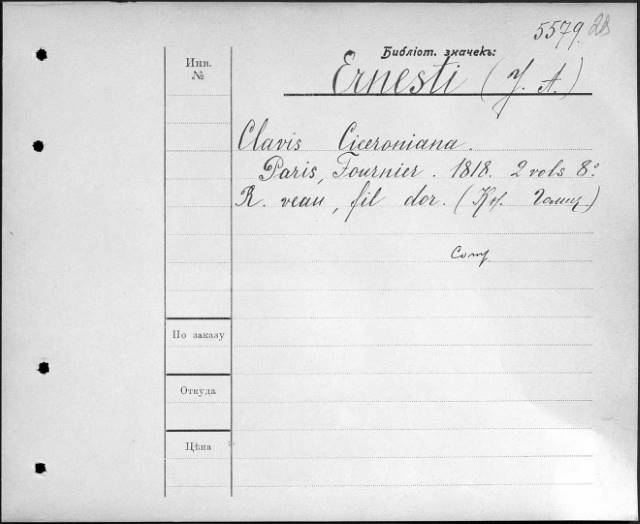 5579. 28
Библіот. значекъ:
Инв.
№
Ernesti (J. A.)
Clavis Ciceroniana.
Paris, Fournier. 1818. 2 vols 8º
R. veau, fil dor. (Кн. Голиц.)
По заказу
Откуда
Цѣна